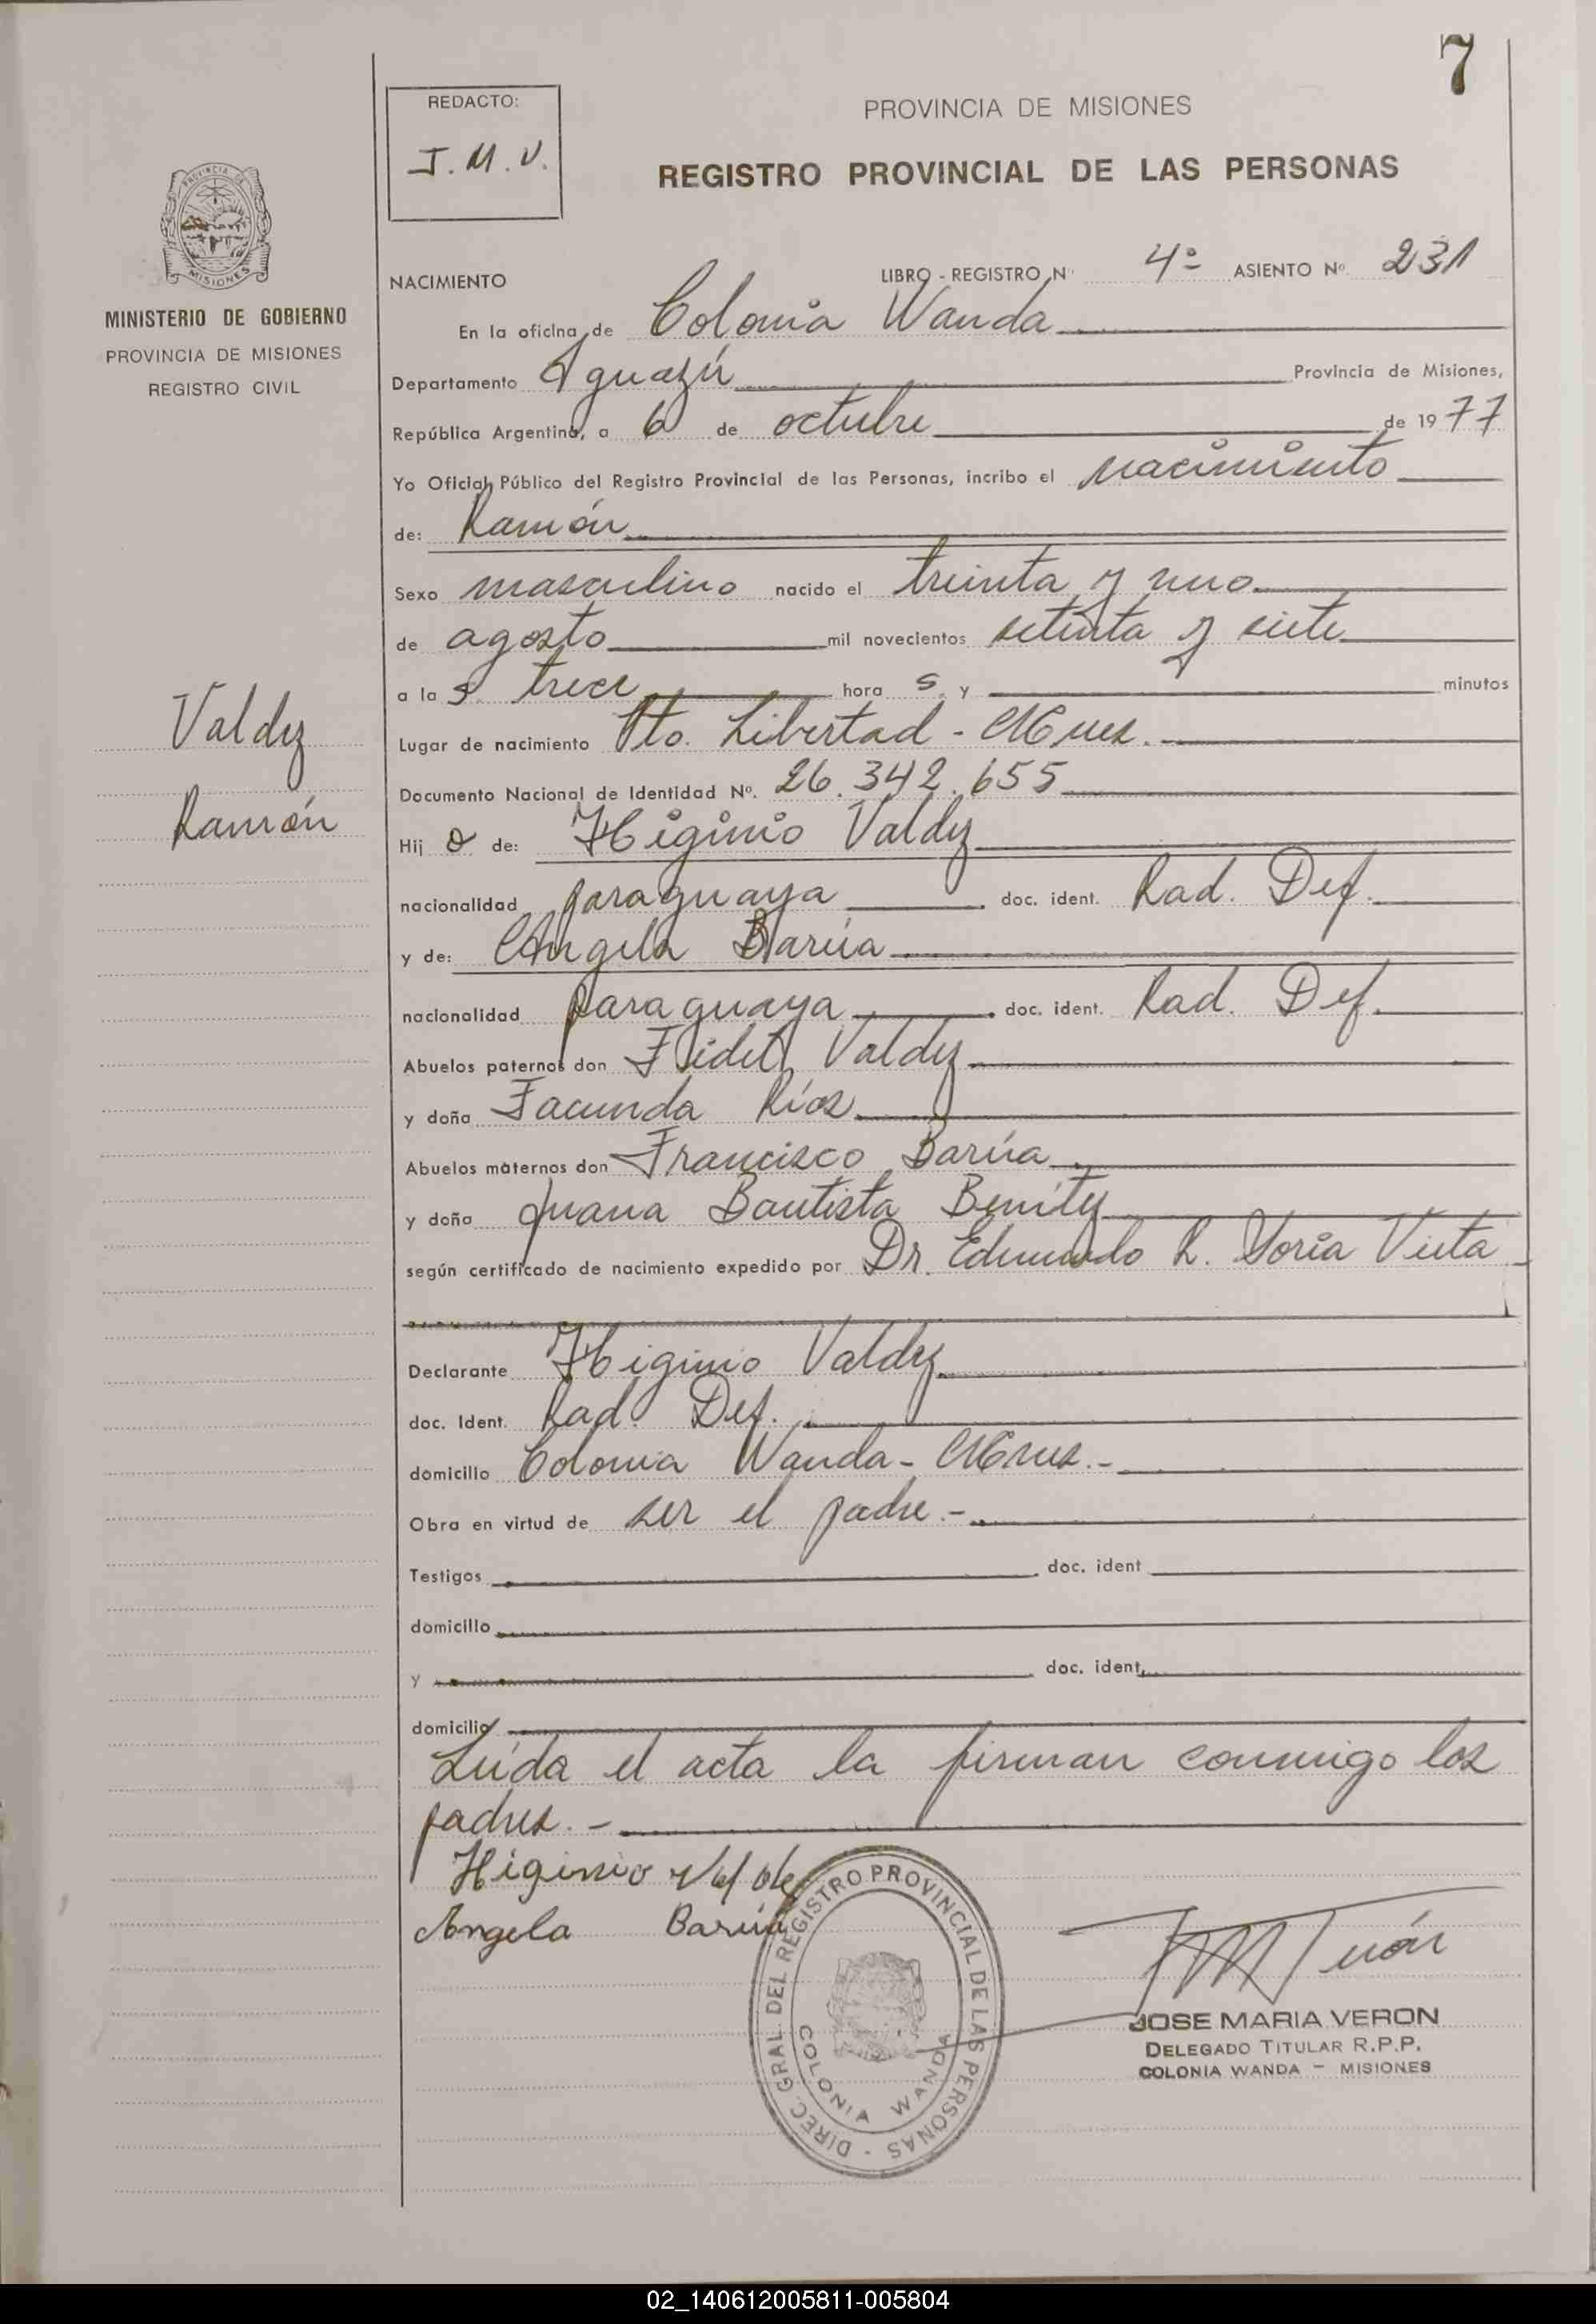 7
REDACTO:
J. M. V.
PROVINCIA DE MISIONES
REGISTRO PROVINCIAL DE LAS PERSONAS
MISIONES
MINISTERIO DE GOBIERNO
PROVINCIA DE MISIONES
REGISTRO CIVIL
NACIMIENTO LIBRO - REGISTRO Nº 4º ASIENTO Nº 231
En la oficina de Colonia Wanda
Departamento Iguazú Provincia de Misiones,
República Argentina, a 6 de octubre de 1977
Yo Oficial Público del Registro Provincial de las Personas, incribo el nacimiento
de: Ramón
Sexo masculino nacido el treinta y uno
de agosto mil novecientos setenta y siete
a las trece hora s y minutos
Lugar de nacimiento Pto. Libertad - Mnes.
Documento Nacional de Identidad Nº. 26.342.655
Valdez
Ramón
Hijo de: Higinio Valdez
nacionalidad paraguaya doc. ident. Rad. Def.
y de: Angela Barúa
nacionalidad paraguaya doc. ident. Rad. Def.
Abuelos paternos don Fidel Valdez
y doña Facunda Ríos
Abuelos maternos don Francisco Barúa
y doña Juana Bautista Benítez
según certificado de nacimiento expedido por Dr. Edmundo R. Soria Vieta
Declarante Higinio Valdez
doc. Ident. Rad. Def.
domicilio Colonia Wanda - Mnes.-
Obra en virtud de ser el padre.-
Testigos doc. ident
domicilio
y doc. ident.
domicilio
Leída el acta la firman conmigo los
padres.-
Higinio Valdez
Angela Barúa
DIREC. GRAL. DEL REGISTRO PROVINCIAL DE LAS PERSONAS -
COLONIA WANDA
JOSE MARIA VERON
DELEGADO TITULAR R.P.P.
COLONIA WANDA - MISIONES
02_140612005811-005804